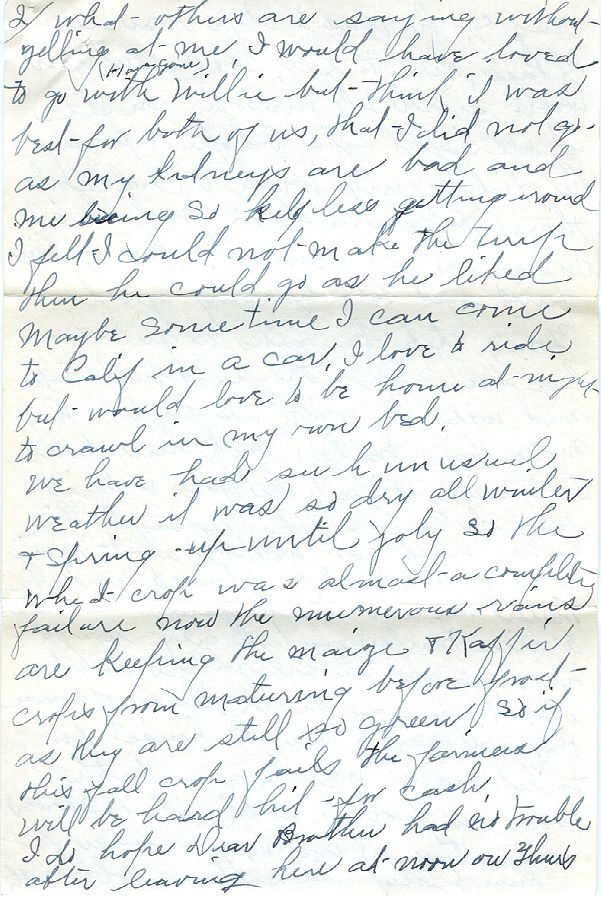 2/ what others are saying without
yelling at me, I would have loved
(Have gone)
to go with Willie but think it was
best for both of us, that I did not go.
as my kidneys are bad and
me being so helpless getting around
I fell I could not make the trip
then he could go as he liked
Maybe sometime I can come
to Calif in a car, I love to ride
but would love to be home at night
to crawl in my own bed.
We have had such unusuel
weather it was so dry all winter
+ Spring up until July so the
wheat crop was almost a complete
failure now the numerous rains
are keeping the maize + Kaffir
crops from maturing before frost
as they are still so green so if
this fall crop fails the farmers
will be hard hit for cash,
I do hope Dear Brother had no trouble
after leaving here at noon on Thurs